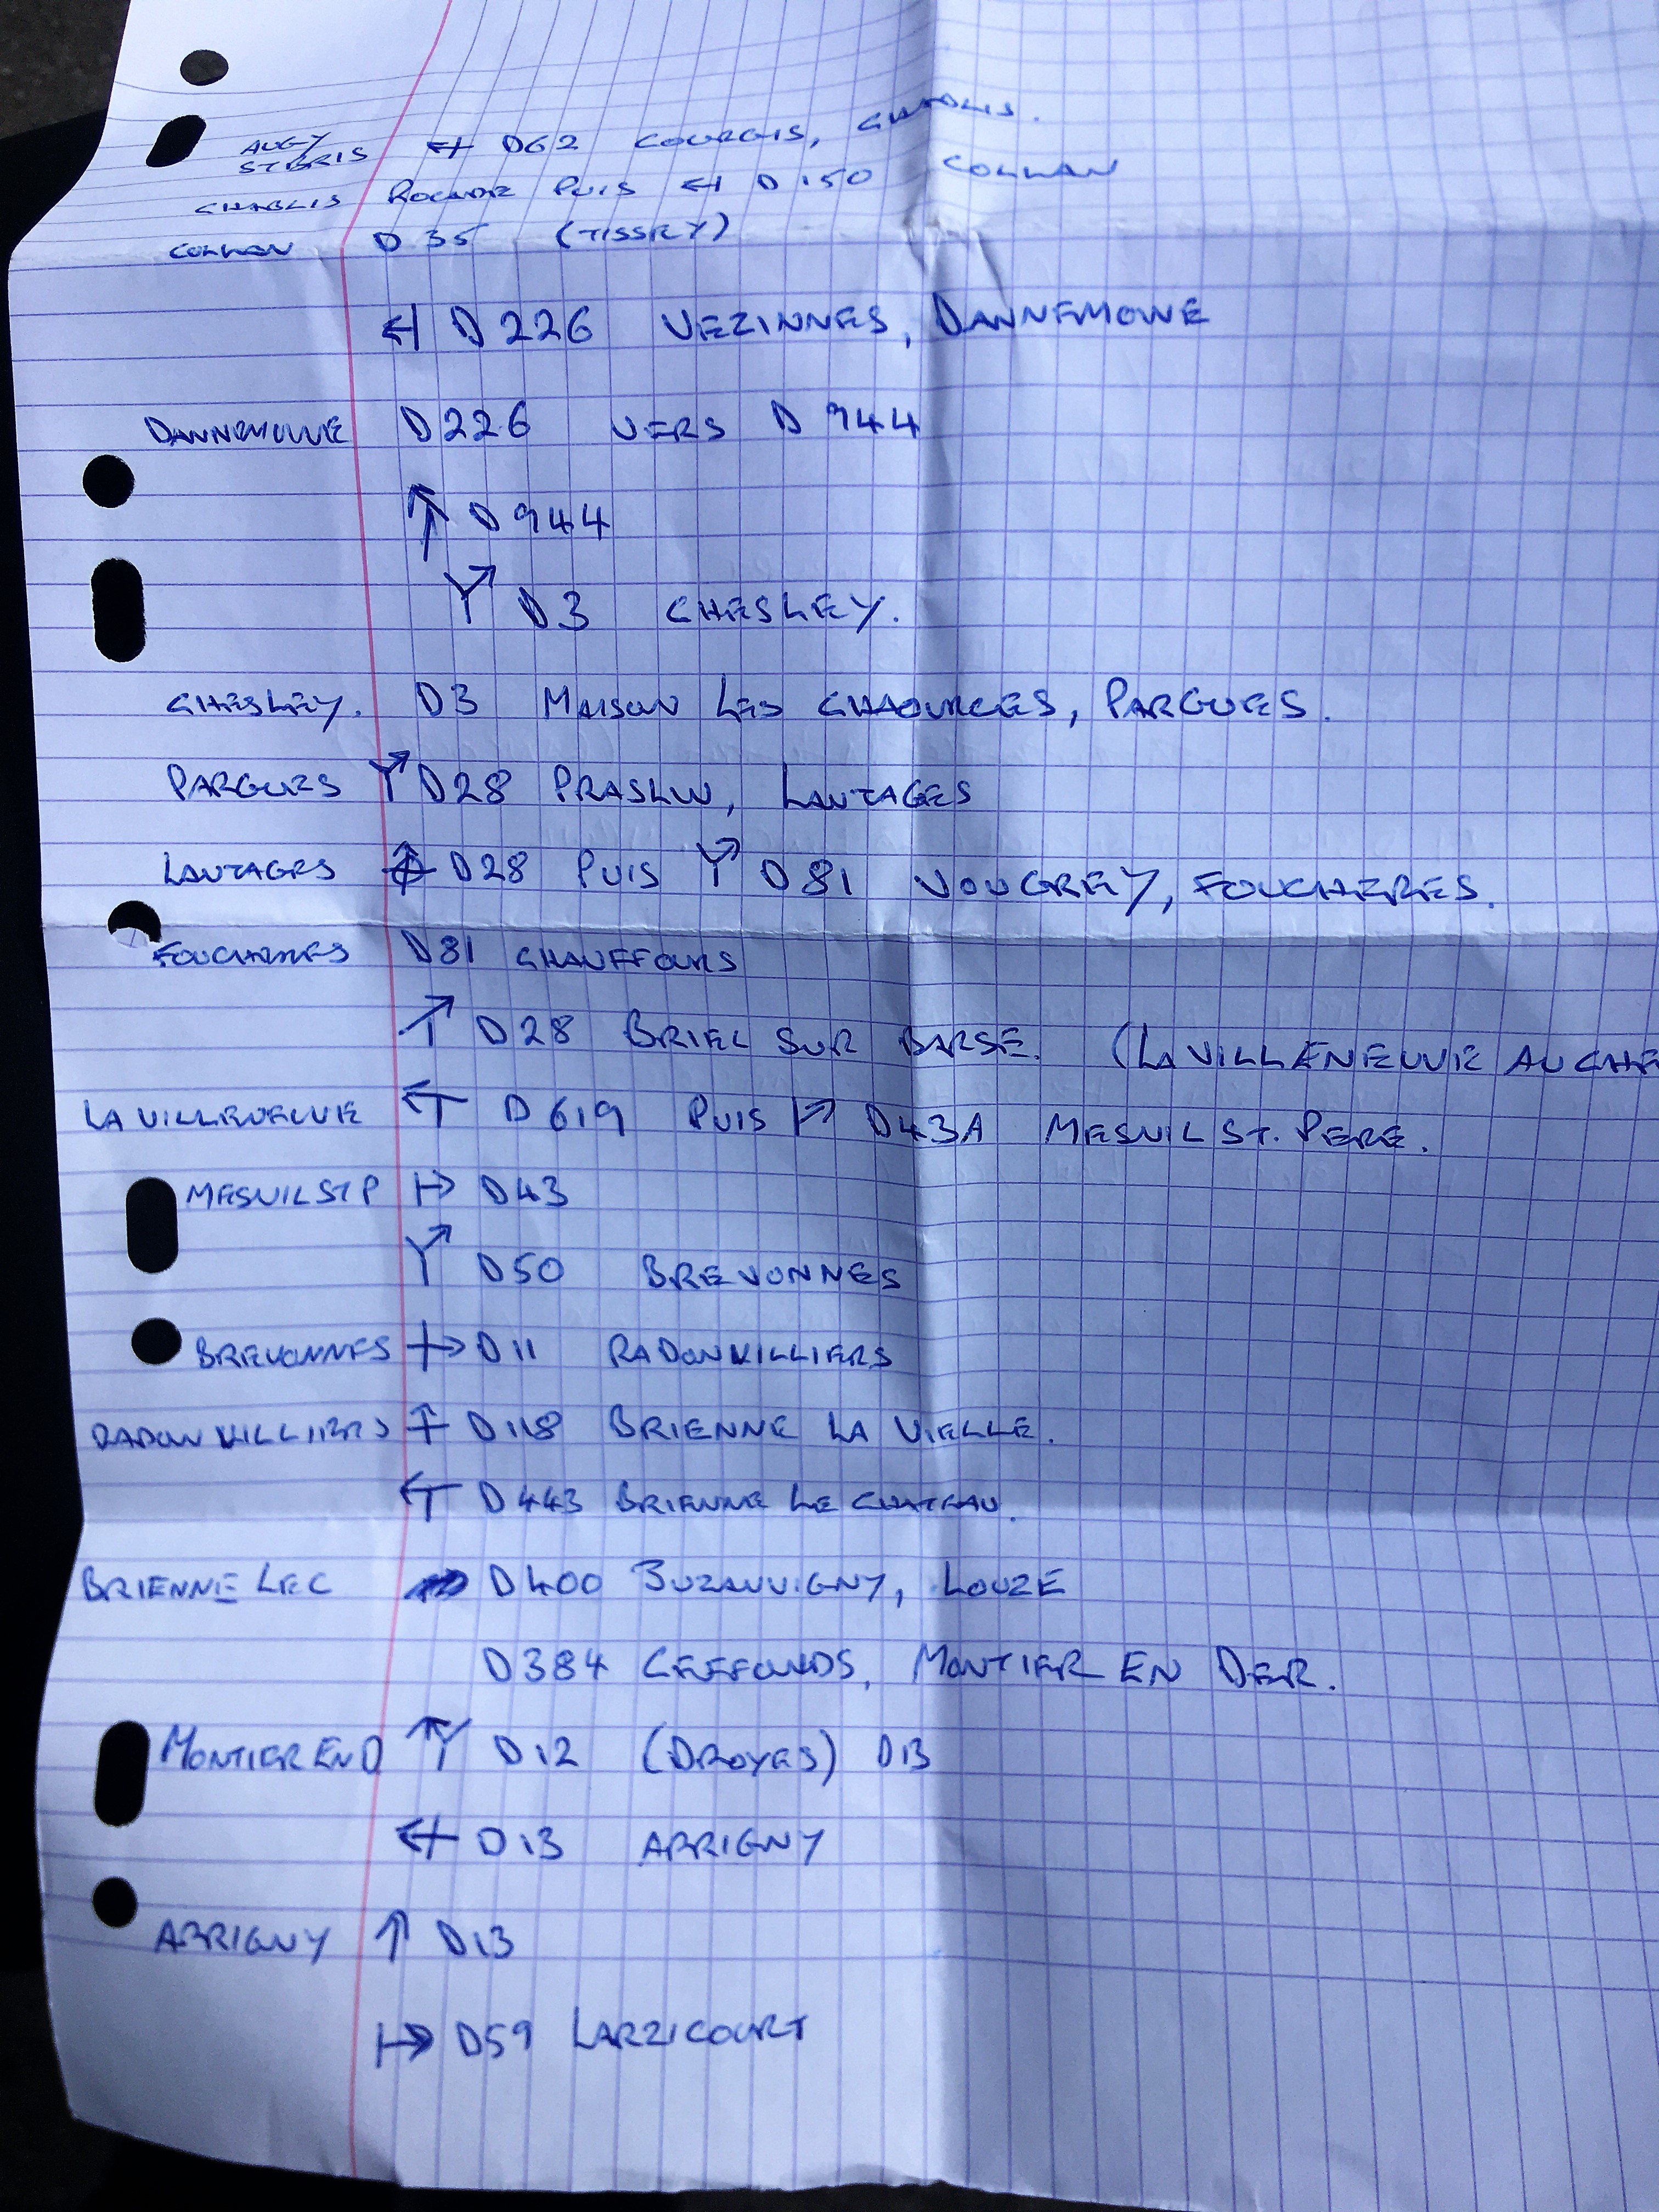 AUGY
ST BRIS D62 COURGIS, CHABLIS.
CHABLIS ROCADE PUIS D150 COLLAN
COLLAN D35 (TISSEY)
D226 VEZINNES, DANNEMOINE
DANNEMOINE D226 VERS D944
D944
D3 CHESLEY.
CHESLEY. D3 MAISON LES CHAOURCES, PARGUES.
PARGUES D28 PRASLIN, LANTAGES
LANTAGES D28 PUIS D81 VOUGREY, FOUCHERES.
FOUCHERES D81 CHAUFFOURS
D28 BRIEL SUR BARSE. (LA VILLENEUVE AU CHE
LA VILLENEUVE D619 PUIS D43A MESNIL ST. PERE.
MESNIL ST P D43
D50 BREVONNES
BREVONNES D11 RADONVILLIERS
RADONVILLIERS D118 BRIENNE LA VIELLE.
D443 BRIENNE LE CHATEAU.
BRIENNE LE C D400 JUZANVIGNY, LOUZE
D384 CEFFONDS, MONTIER EN DER.
MONTIER EN D D12 (DROYES) D13
D13 ARRIGNY
ARRIGNY D13
D59 LARZICOURT